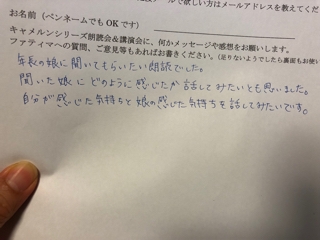 で欲しい方はメールアドレスを教えてくだ
お名前（ペンネームでもOKです）
キャメルンシリーズ朗読会&講演会に、何かメッセージや感想をお願いします。
ファティマへの質問、ご意見等もあればお書きください。（足りないようでしたら裏面もお使い
年長の娘に聞いてもらいたい朗読でした。
聞いた娘にどのように感じたか話してみたいとも思いました。
自分が感じた気持ちと娘の感じた気持ちを話してみたいです。